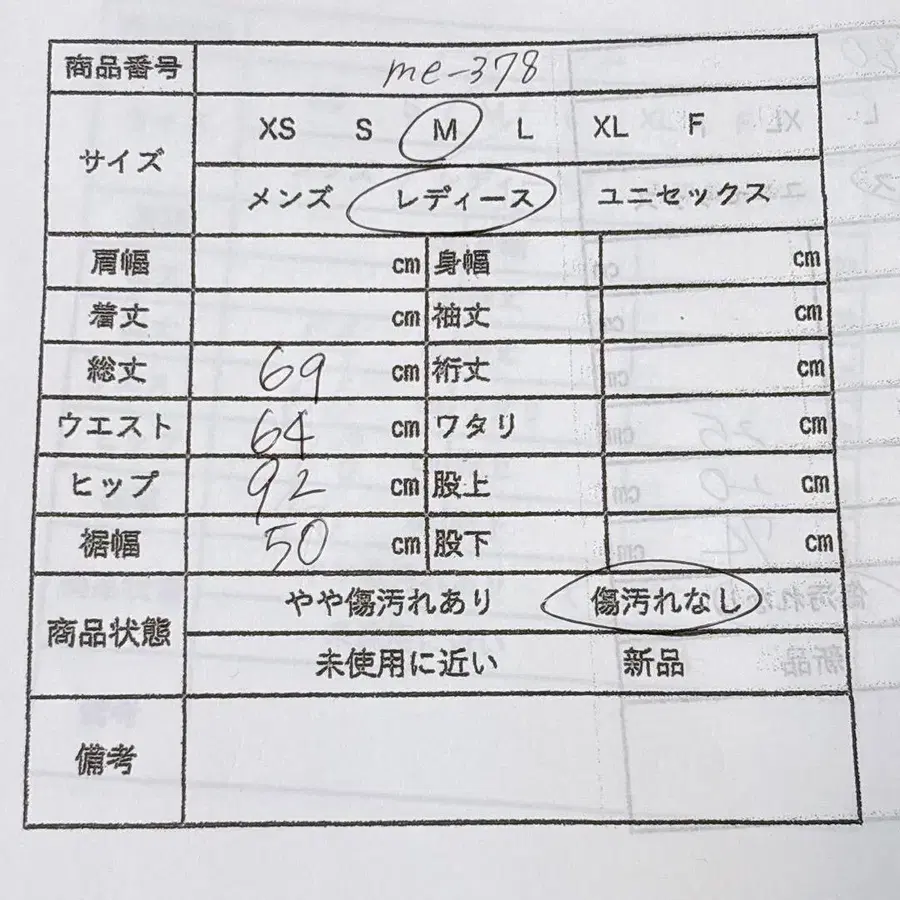 商品番号 me-378
サイズ XS S M L XL F
メンズ レディース ユニセックス
肩幅 cm 身幅 cm
着丈 cm 袖丈 cm
総丈 69 cm 裄丈 cm
ウエスト 64 cm ワタリ cm
ヒップ 92 cm 股上 cm
裾幅 50 cm 股下 cm
商品状態 やや傷汚れあり 傷汚れなし
未使用に近い 新品
備考